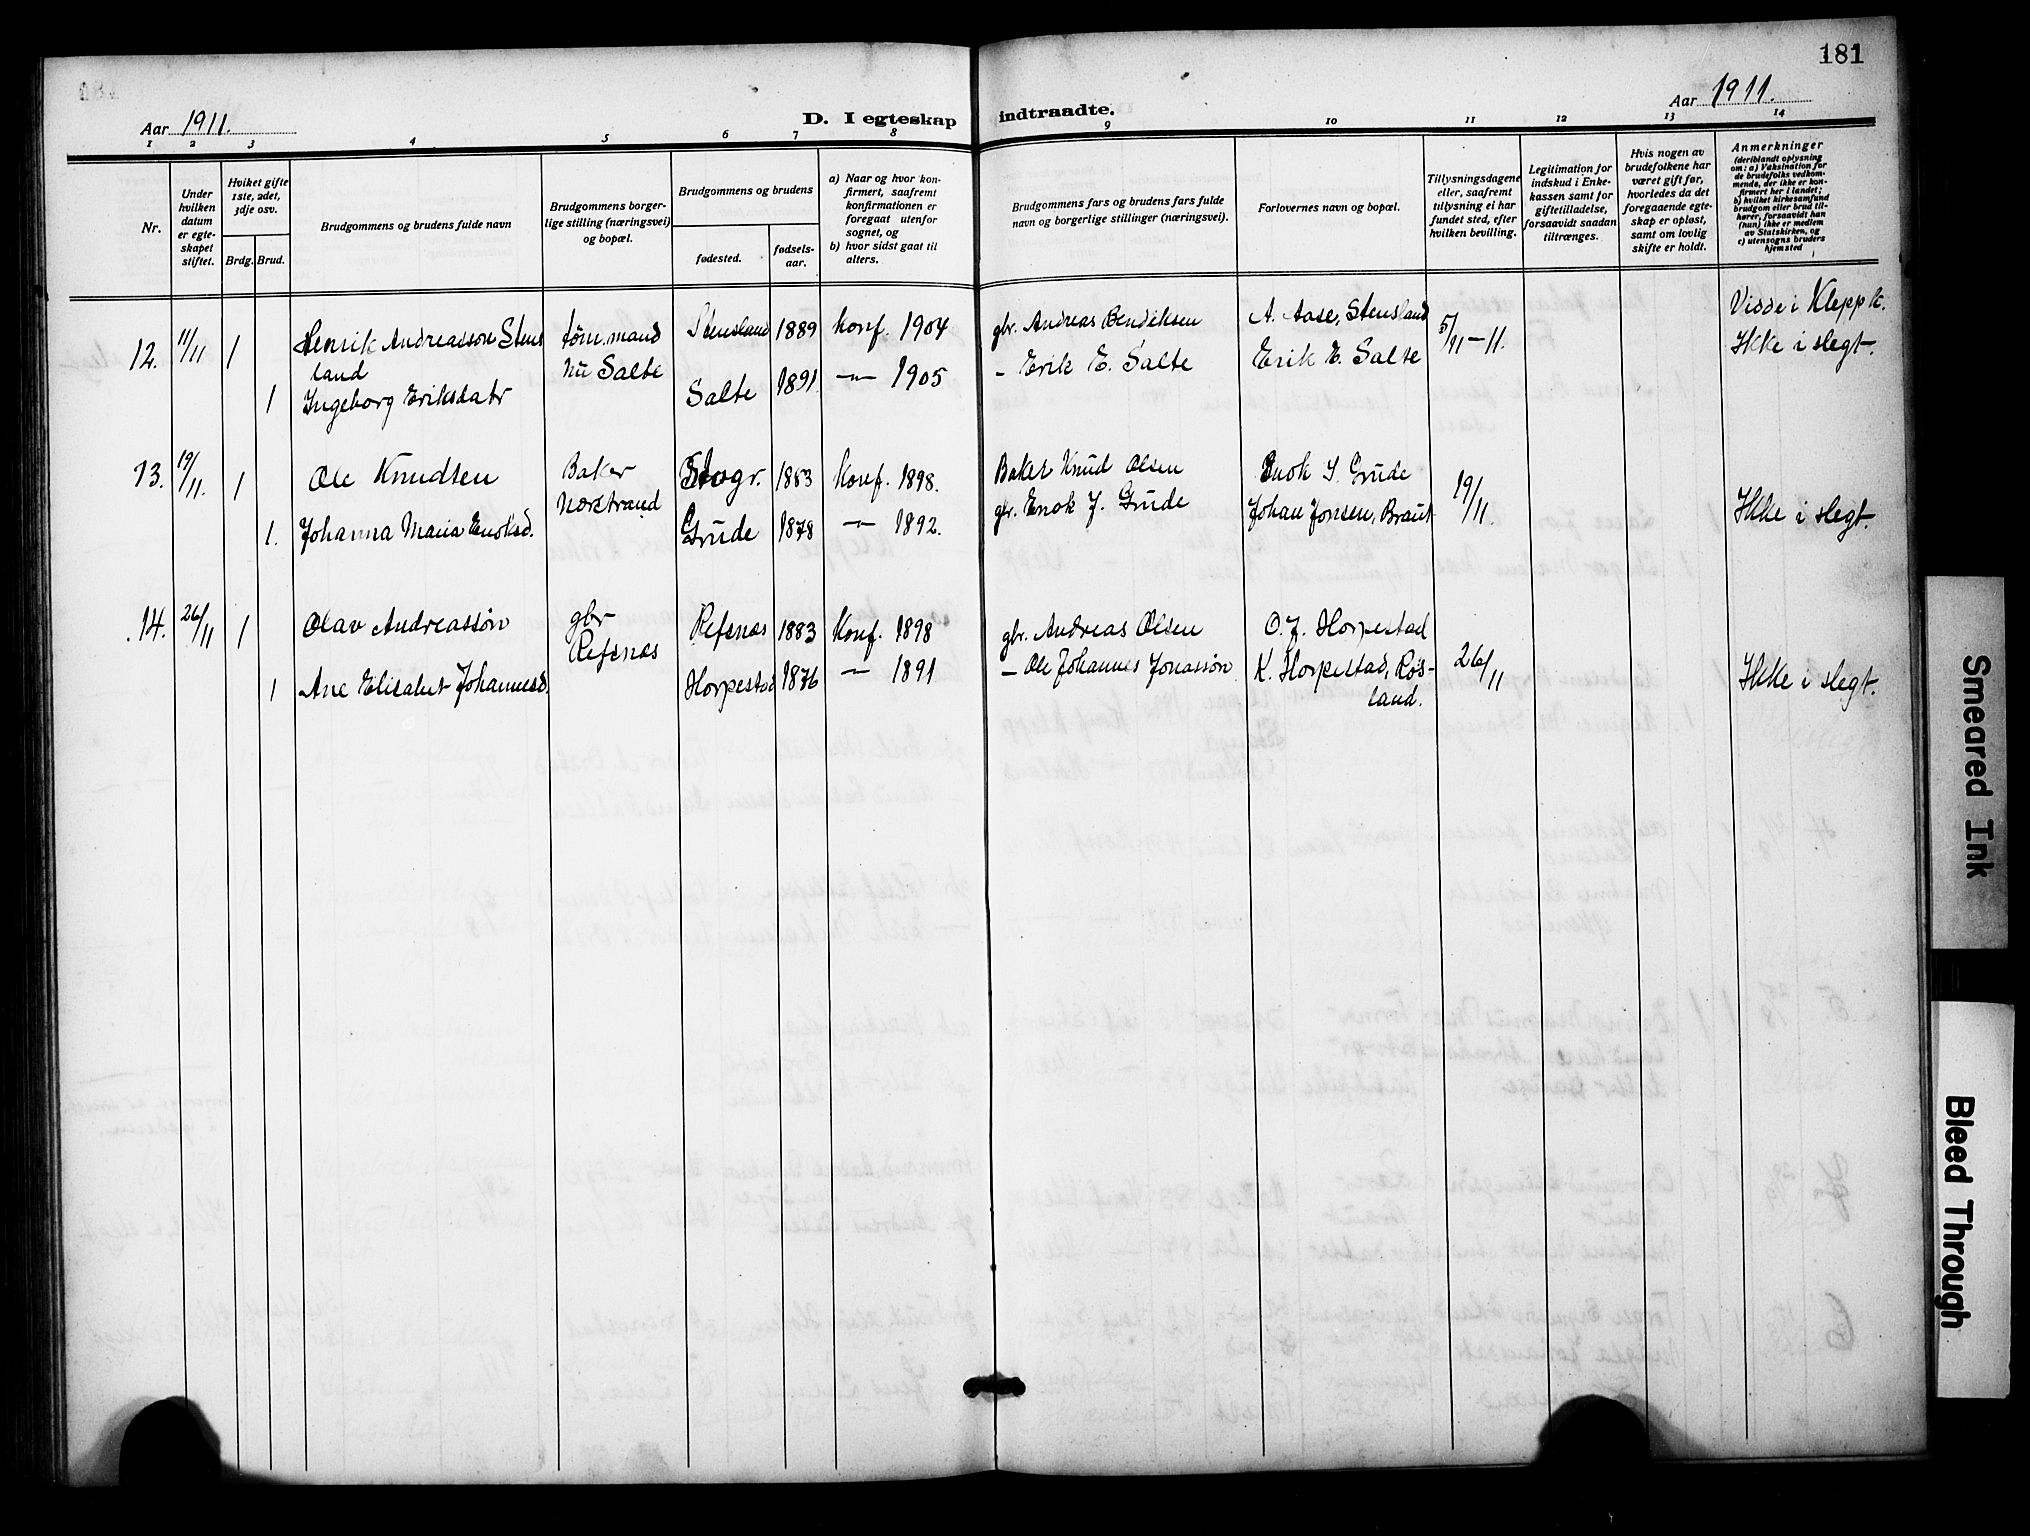 181
Aar 1911.
D. I egteskap indtraadte.
Aar 1911.
1 2 3 4 5 6 7 8 9 10 11 12 13 14
Nr.
Under hvilken datum er egteskapet stiftet.
Hviket gifte 1ste, 2det, 3dje osv.
Brdg. Brud.
Brudgommens og brudens fulde navn
Brudgommens borgerlige stilling (næringsvei) og bopæl.
Brudgommens og brudens
fødested.
fødselsaar.
a) Naar og hvor konfirmert, saafremt konfirmationen er foregaat utenfor sognet, og
b) hvor sidst gaat til alters.
Brudgommens fars og brudens fars fulde navn og borgerlige stillinger (næringsvei).
Forlovernes navn og bopæl.
Tillysningsdagene eller, saafremt tillysning ei har fundet sted, efter hvilken bevilling.
Legitimation for indskud i Enkekassen samt for giftetilladelse, forsaavidt saadan tiltrænges.
Hvis nogen av brudefolkene har været gift før, hvorledes da det foregaaende egteskap er opløst, samt om lovlig skifte er holdt.
Anmerkninger
(deriblandt oplysning om: a) Vaksination for de brudefolks vedkommende, der ikke er konfirmert her i landet; b) hvilket kirkesamfund brudgom eller brud tilhører, forsaavidt han (hun) ikke er medlem av Statskirken, og c) utensogns bruders hjemsted
12. 11/11 1 Henrik Andreasson Stensland tøm.mand nu Salte Stensland 1889 Konf. 1904 gbr. Andreas Bendiksen A. Aase, Stensland 5/11-11. Visse i Klepp k. Ikke i slegt.
1 Ingeborg Eriksdatr Salte 1891 -"- 1905 - Erik E. Salte Erik E. Salte
13. 19/11. 1 Ole Knudsen Baker Nærstrand 1883 Konf. 1898. Baker Knud Olsen Enok J. Grude 19/11. Ikke i slegt.
1. Johanna Maria Enoksd. Grude 1878 -"- 1892. gbr. Enok J. Grude Johan Jonsen, Braut
14. 26/11 1 Olav Andreassøn gbr Refsnes Refsnes 1883 Konf. 1898 gbr. Andreas Olsen O. J. Horpestad 26/11 Ikke i slegt.
1 Ane Elisabet Johannesd. Horpestad 1876 -"- 1891 - Ole Johannes Jonassøn K. Horpestad, Rosland.
Smeared Ink
Bleed Through